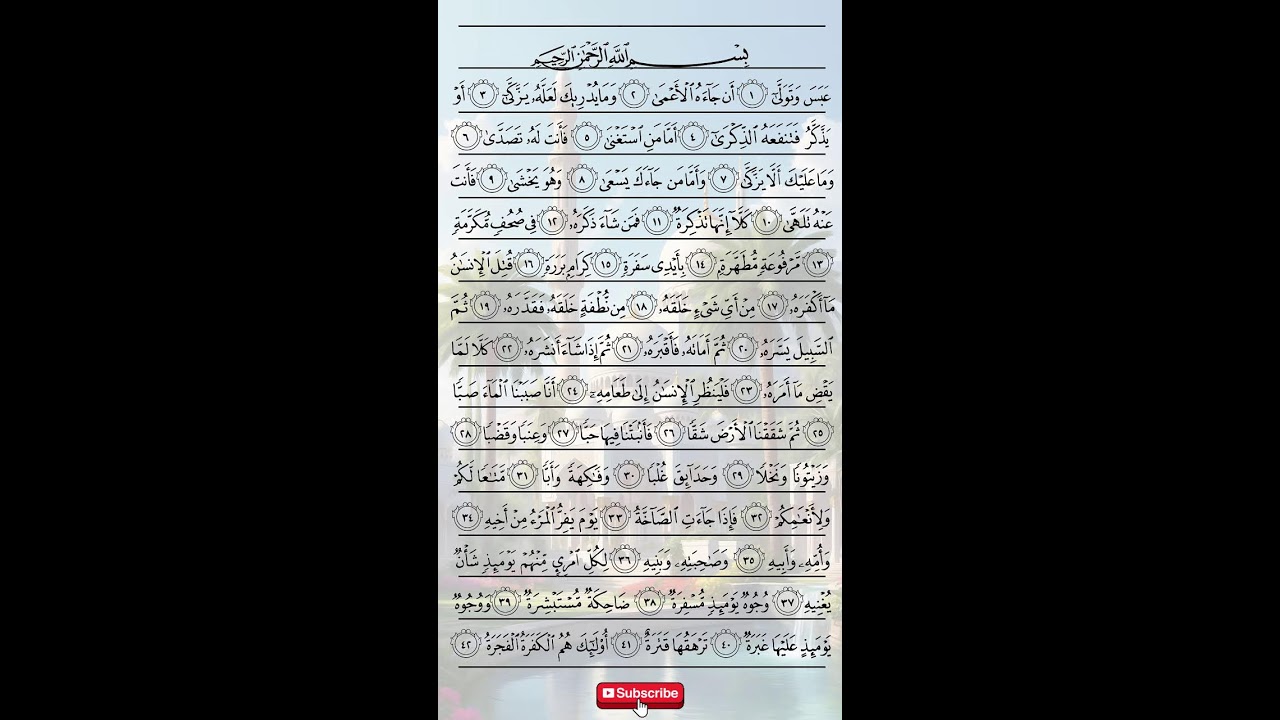 بِسْمِ اللَّهِ الرَّحْمَٰنِ الرَّحِيمِ
عَبَسَ وَتَوَلَّىٰٓ ١ أَن جَآءَهُ الْأَعْمَىٰ ٢ وَمَا يُدْرِيكَ لَعَلَّهُۥ يَزَّكَّىٰٓ ٣ أَوْ
يَذَّكَّرُ فَتَنفَعَهُ الذِّكْرَىٰٓ ٤ أَمَّا مَنِ اسْتَغْنَىٰ ٥ فَأَنتَ لَهُۥ تَصَدَّىٰ ٦
وَمَا عَلَيْكَ أَلَّا يَزَّكَّىٰ ٧ وَأَمَّا مَن جَآءَكَ يَسْعَىٰ ٨ وَهُوَ يَخْشَىٰ ٩ فَأَنتَ
عَنْهُ تَلَهَّىٰ ١٠ كَلَّآ إِنَّهَا تَذْكِرَةٌ ١١ فَمَن شَآءَ ذَكَرَهُۥ ١٢ فِى صُحُفٍ مُّكَرَّمَةٍ
١٣ مَّرْفُوعَةٍ مُّطَهَّرَةٍۭ ١٤ بِأَيْدِى سَفَرَةٍ ١٥ كِرَامٍۭ بَرَرَةٍ ١٦ قُتِلَ الْإِنسَٰنُ
مَآ أَكْفَرَهُۥ ١٧ مِنْ أَىِّ شَىْءٍ خَلَقَهُۥ ١٨ مِن نُّطْفَةٍ خَلَقَهُۥ فَقَدَّرَهُۥ ١٩ ثُمَّ
السَّبِيلَ يَسَّرَهُۥ ٢٠ ثُمَّ أَمَاتَهُۥ فَأَقْبَرَهُۥ ٢١ ثُمَّ إِذَا شَآءَ أَنشَرَهُۥ ٢٢ كَلَّا لَمَّا
يَقْضِ مَآ أَمَرَهُۥ ٢٣ فَلْيَنظُرِ الْإِنسَٰنُ إِلَىٰ طَعَامِهِۦٓ ٢٤ أَنَّا صَبَبْنَا الْمَآءَ صَبًّا
٢٥ ثُمَّ شَقَقْنَا الْأَرْضَ شَقًّا ٢٦ فَأَنۢبَتْنَا فِيهَا حَبًّا ٢٧ وَعِنَبًا وَقَضْبًا ٢٨
وَزَيْتُونًا وَنَخْلًا ٢٩ وَحَدَآئِقَ غُلْبًا ٣٠ وَفَٰكِهَةً وَأَبًّا ٣١ مَّتَٰعًا لَّكُمْ
وَلِأَنْعَٰمِكُمْ ٣٢ فَإِذَا جَآءَتِ الصَّآخَّةُ ٣٣ يَوْمَ يَفِرُّ الْمَرْءُ مِنْ أَخِيهِ ٣٤
وَأُمِّهِۦ وَأَبِيهِ ٣٥ وَصَٰحِبَتِهِۦ وَبَنِيهِ ٣٦ لِكُلِّ امْرِئٍ مِّنْهُمْ يَوْمَئِذٍ شَأْنٌ
يُغْنِيهِ ٣٧ وُجُوهٌ يَوْمَئِذٍ مُّسْفِرَةٌ ٣٨ ضَاحِكَةٌ مُّسْتَبْشِرَةٌ ٣٩ وَوُجُوهٌ
يَوْمَئِذٍ عَلَيْهَا غَبَرَةٌ ٤٠ تَرْهَقُهَا قَتَرَةٌ ٤١ أُو۟لَٰٓئِكَ هُمُ الْكَفَرَةُ الْفَجَرَةُ ٤٢
Subscribe